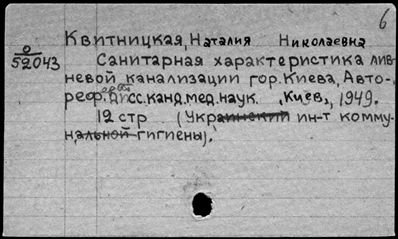 6
Квитницкая, Наталия Николаевна
О
52043
Санитарная характеристика лив-
невой канализации гор. Киева, Авто-
реф. дисс. канд. мед. наук. Киев, 1949.
12 стр (Украинский ин-т комму-
нальной гигиены).